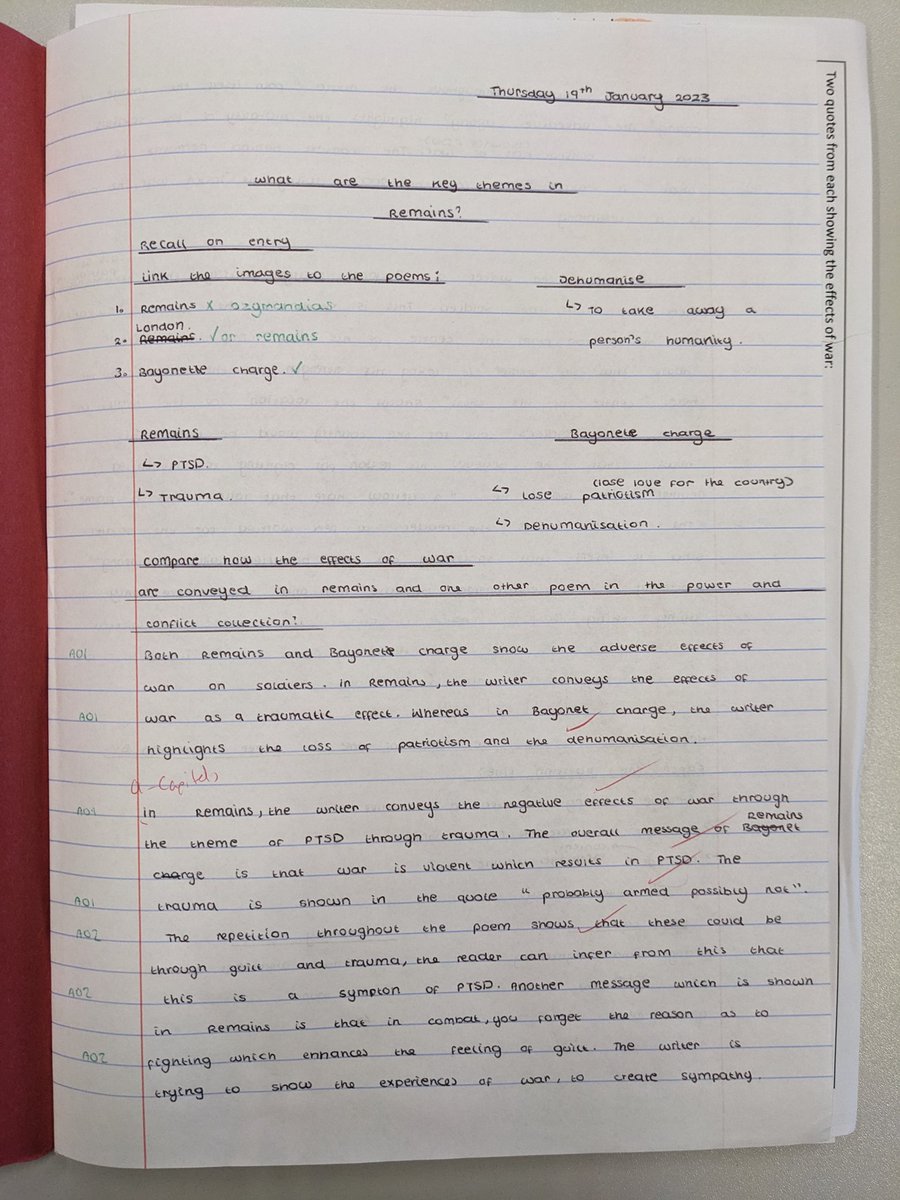 Two quotes from each showing the effects of war:
Thursday 19th January 2023
What are the key themes in
Remains?
Recall on entry
Link the images to the poems:
Dehumanise
1. Remains x ozymandias
↳ To take away a
London.
2. Remains. ✓ or remains
person's humanity.
3. Bayonette charge. ✓
Remains
Bayonete charge
↳ PTSD.
(lose love for the country)
↳ Trauma.
↳ Lose patriotism
↳ Dehumanisation.
compare how the effects of war
are conveyed in remains and one other poem in the power and
conflict collection:
AO1 Both Remains and Bayonete charge show the adverse effects of
war on soldiers. in Remains, the writer conveys the effects of
AO1 war as a traumatic effect. Whereas in Bayonet charge, the writer
highlights the loss of patriotism and the dehumanisation.
a - Capitals
AO1 in Remains, the writer conveys the negative effects of war through
the theme of PTSD through trauma. The overall message of Bayonet Remains
charge is that war is violent which results in PTSD. The
AO1 trauma is shown in the quote "probably armed possibly not".
AO2 The repetition throughout the poem shows that these could be
through guilt and trauma, the reader can infer from this that
AO2 this is a sympton of PTSD. Another message which is shown
in Remains is that in combat, you forget the reason as to
AO2 fighting which enhances the feeling of guilt. The writer is
trying to show the experiences of war, to create sympathy.